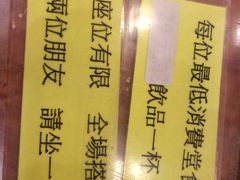 每位最低消費堂食
飲品一杯
座位有限 全場搭
兩位朋友 請坐一